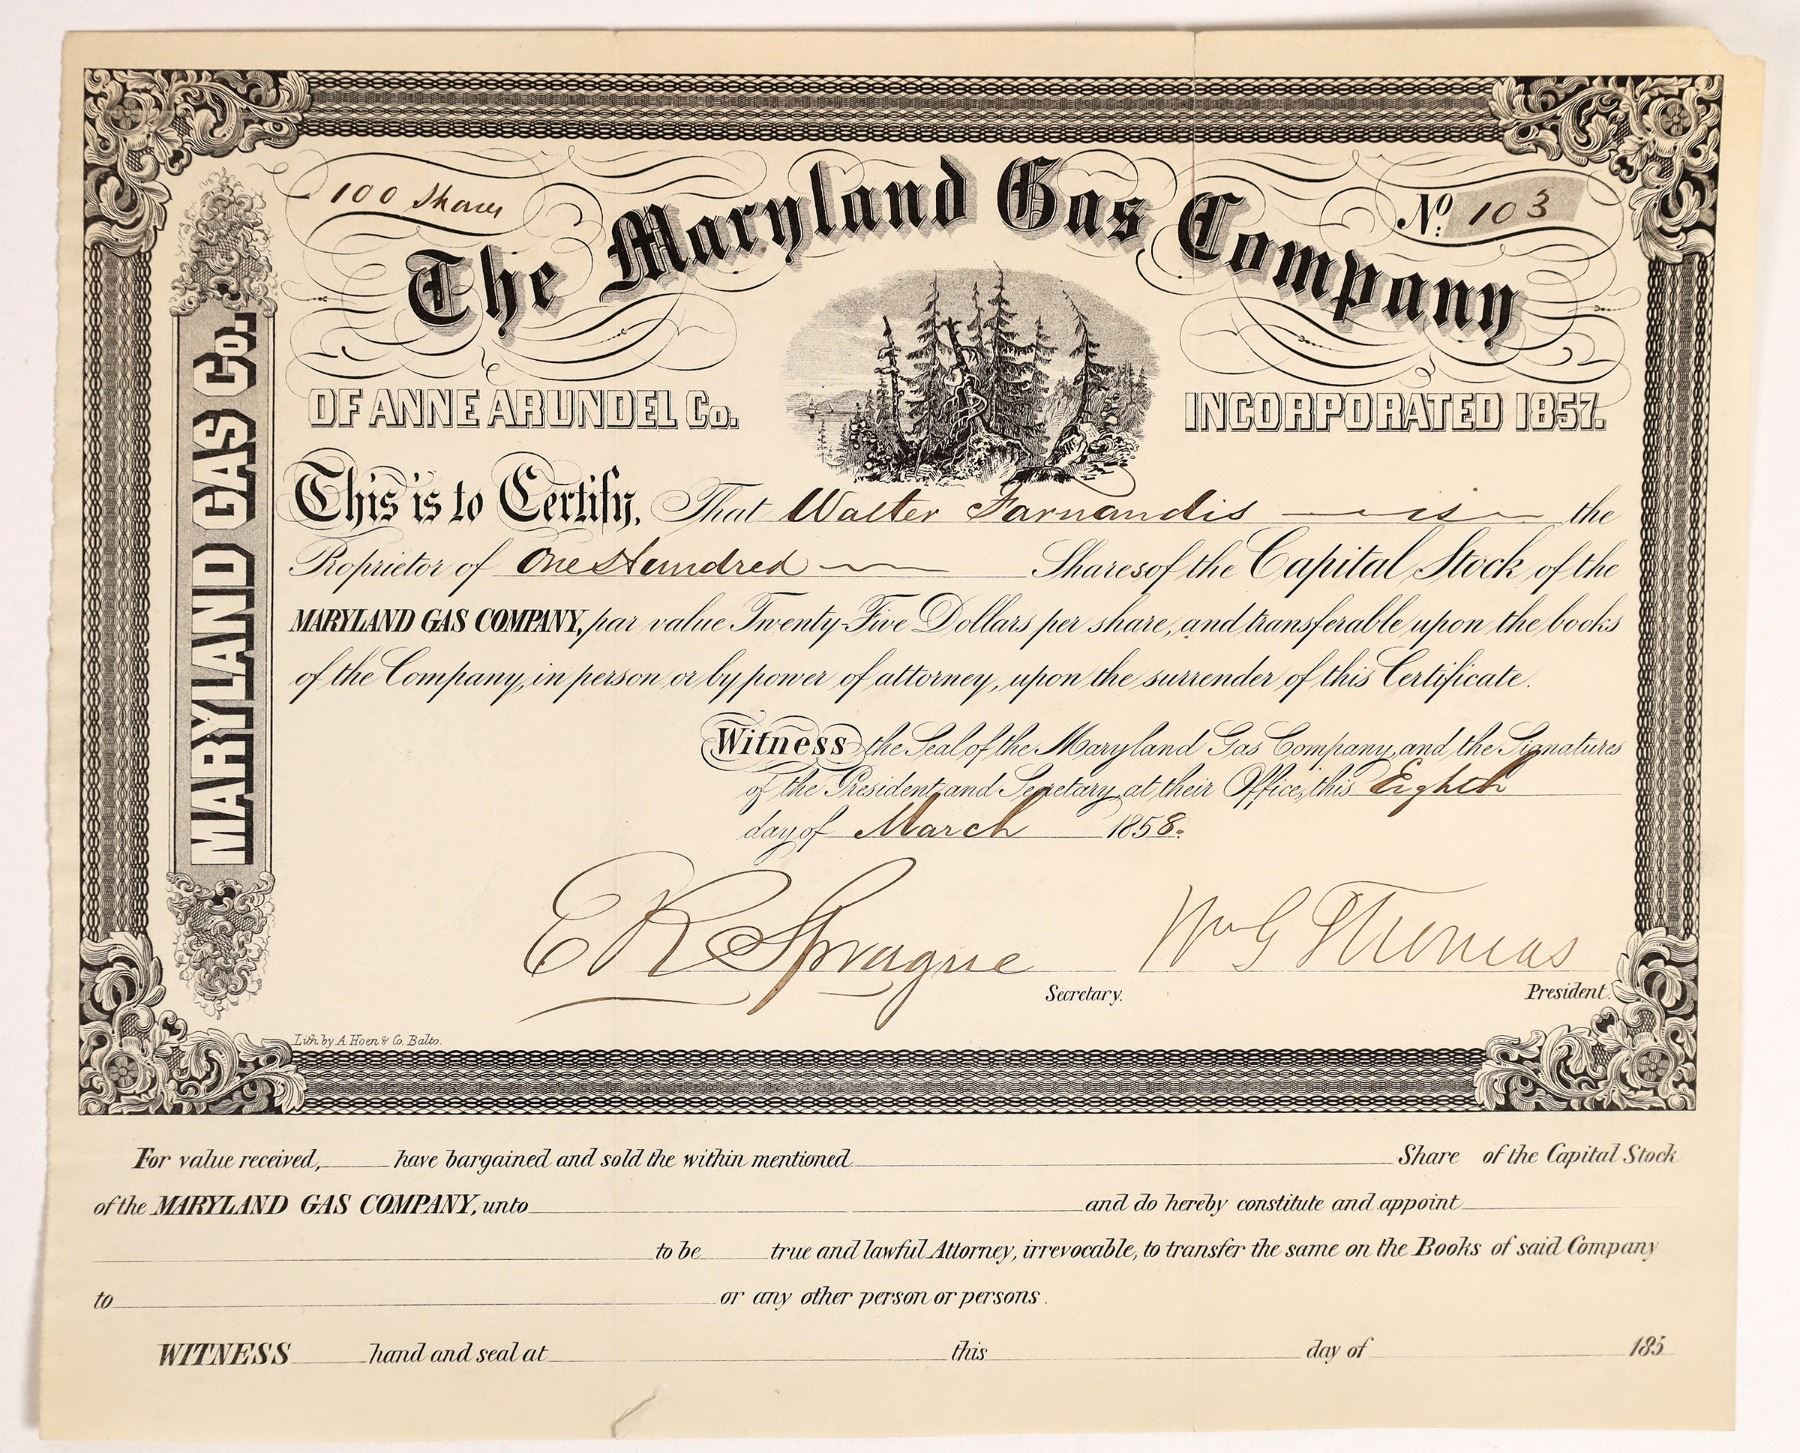 100 Shares
No. 103
The Maryland Gas Company
OF ANNE ARUNDEL Co.
INCORPORATED 1857.
MARYLAND GAS Co.
This is to Certify, That Walter Farnandis is the
Proprietor of One Hundred Shares of the Capital Stock of the
MARYLAND GAS COMPANY, par value Twenty-Five Dollars per share, and transferable upon the books
of the Company, in person or by power of attorney, upon the surrender of this Certificate.
Witness the Seal of the Maryland Gas Company, and the Signatures
of the President and Secretary at their Office, this Eighth
day of March 1858.
E R Sprague
Secretary.
Wm G Thomas
President.
Lith. by A. Hoen & Co. Balto.
For value received, have bargained and sold the within mentioned Share of the Capital Stock
of the MARYLAND GAS COMPANY, unto and do hereby constitute and appoint
to be true and lawful Attorney, irrevocable, to transfer the same on the Books of said Company
to or any other person or persons.
WITNESS hand and seal at this day of 185